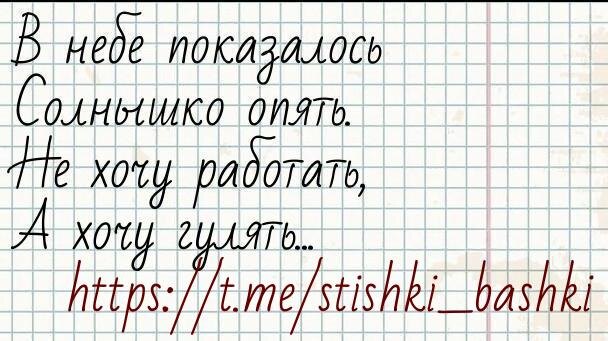 В небе показалось
Солнышко опять.
Не хочу работать,
А хочу гулять...
https://t.me/stishki_bashki